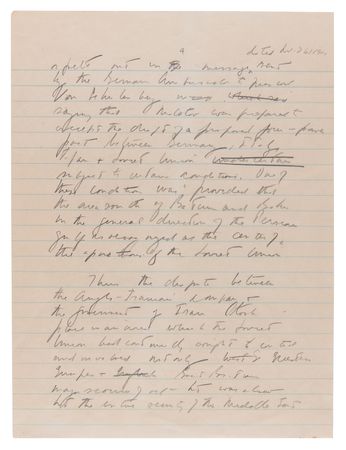 4
spelt out in message sent
by the German Ambassador
Von Schulenberg
saying that Molotov was prepared
accept the draft of a proposed four-power
pact between Germany, Italy
Japan & Soviet Union
subject to certain conditions. One of
these conditions was provided that
the area south of Batum and Baku
in the general direction of the Persian
Gulf is recognized as the center of
the aspirations of the Soviet Union
Thus the dispute between
the Anglo-Iranian Company &
the government of Iran took
place in an area which the Soviet
Union had continually sought to control
and involved not only Western
Europe
major source of oil - it was also
the entire security of the Middle East